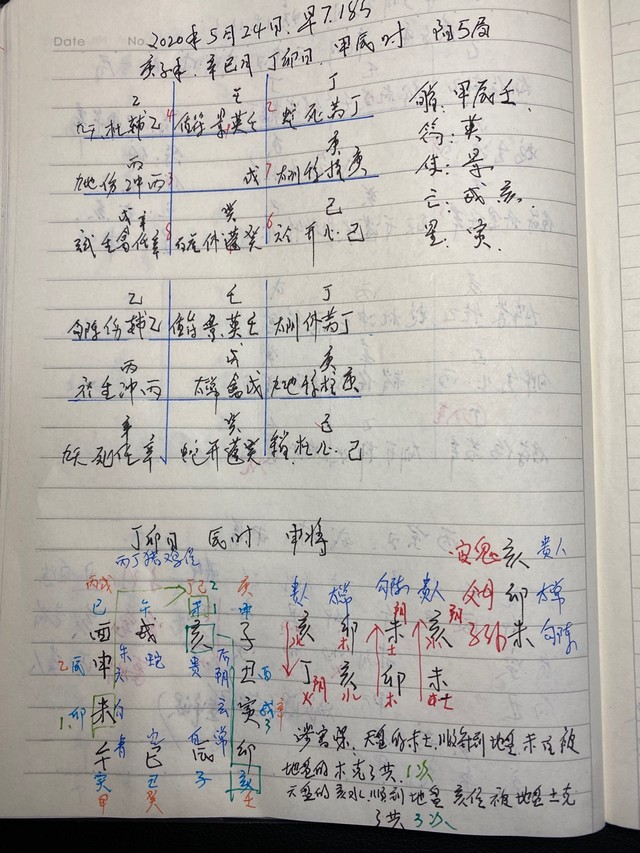 Date No.
2020年5月24日.早7.18分
庚子年.辛巳月丁卯日.甲辰时 阳5局
乙 壬 丁
九天.杜辅乙 4 值符景英壬 2 蛇死芮丁
丙 庚
九地伤冲丙 3 戊 7 太阴惊柱庚
戊辛 癸 己
玄武生禽任辛 8 休蓬癸 6 六合开心己
旬首:甲辰壬
符:英
使:景
亡:戌亥
星:寅
乙 壬 丁
勾陈伤辅乙 值符景英壬 太阴休芮丁
丙 戊 庚
六合生冲丙 太常禽戊 九地惊柱庚
辛 癸 己
九天死任辛 蛇开蓬癸 杜心己
丁卯日 辰时 申将
丙丁猪鸡位
丙戌 丁己 2 庚
巳 午 未 1 申
酉 戌 亥 子
蛇 贵 后
乙辰 申 朱 阴 丑 酉
1.卯 未 六 合 玄 寅 戌 3 辛
青 常 卯
午 巳 辰 亥
寅 丑 子
甲 癸 壬
贵人 太常 勾陈 贵人
亥 水 卯 木 未 土 阴 亥 阴
丁 火 阴 亥 水 卯 木 未 土
官鬼 亥 贵人
父母 卯 太常
子孙 未 勾陈
涉害课.天盘的未土.顺行到地盘未位被
地盘的木克了共.1次
天盘的亥水.顺到地盘亥位被地盘土克
了共 3次